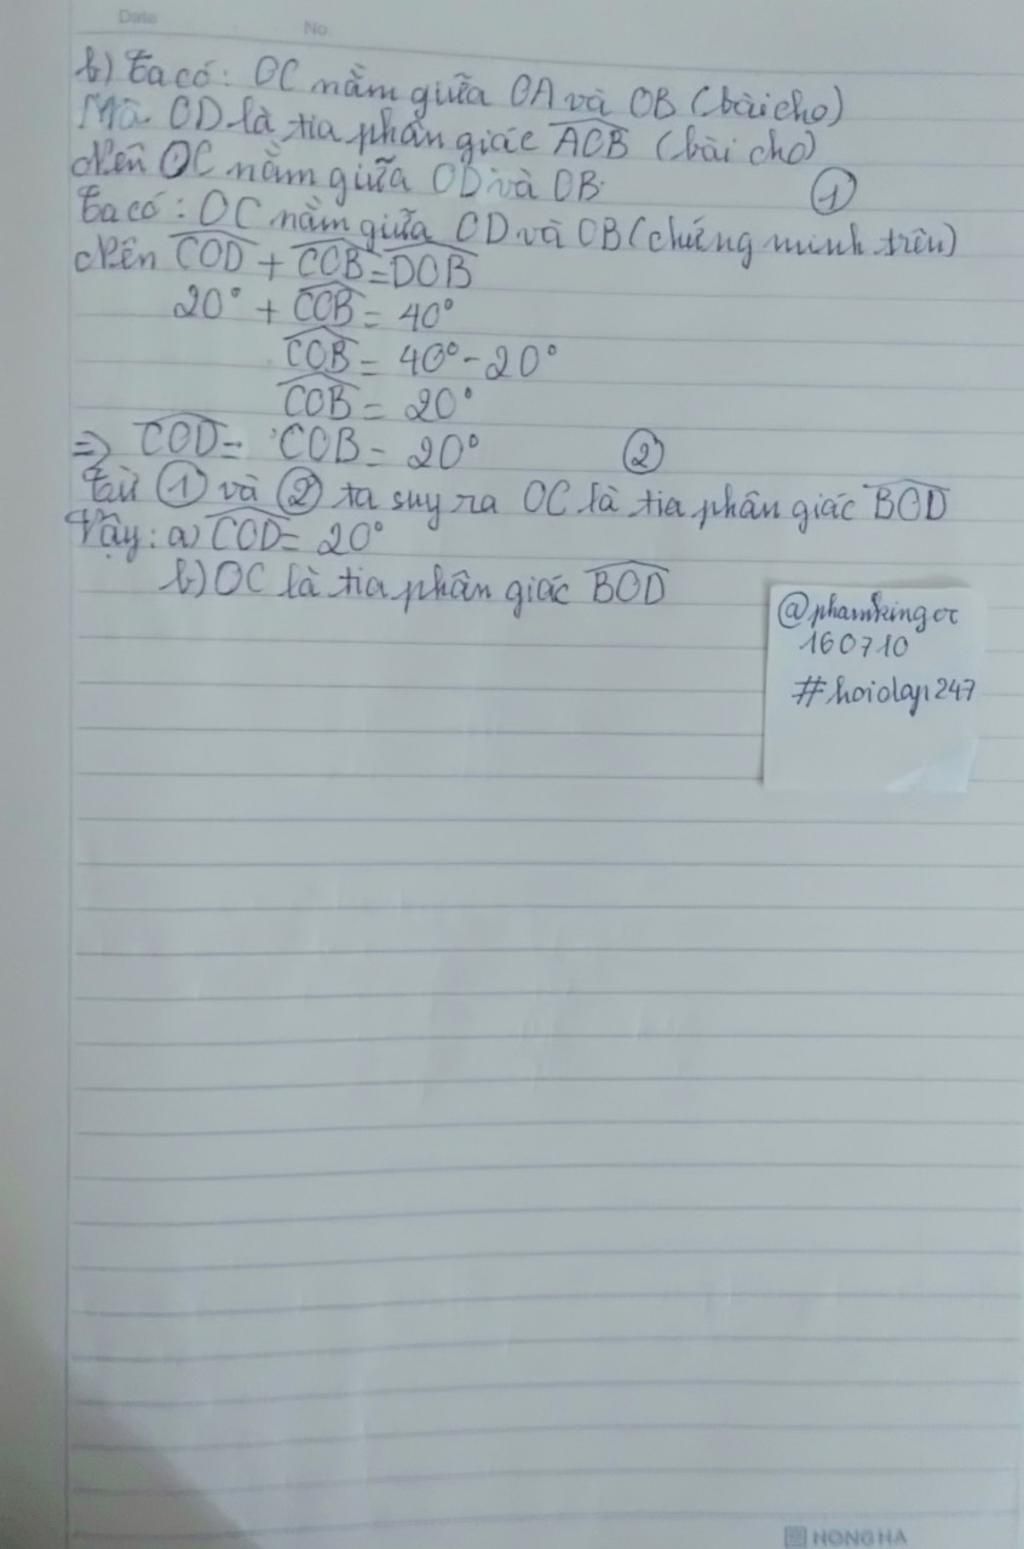 Date No.
b) Ta có: OC nằm giữa OA và OB (bài cho)
Mà OD là tia phân giác AOB (bài cho)
Nên OC nằm giữa OD và OB. ①
Ta có: OC nằm giữa OD và OB (chứng minh trên)
Nên COD + COB = DOB
20° + COB = 40°
COB = 40° - 20°
COB = 20°
=> COD = COB = 20° ②
Từ ① và ② ta suy ra OC là tia phân giác BOD
Vậy: a) COD = 20°
b) OC là tia phân giác BOD
160710
#hoidap247
HONG HA